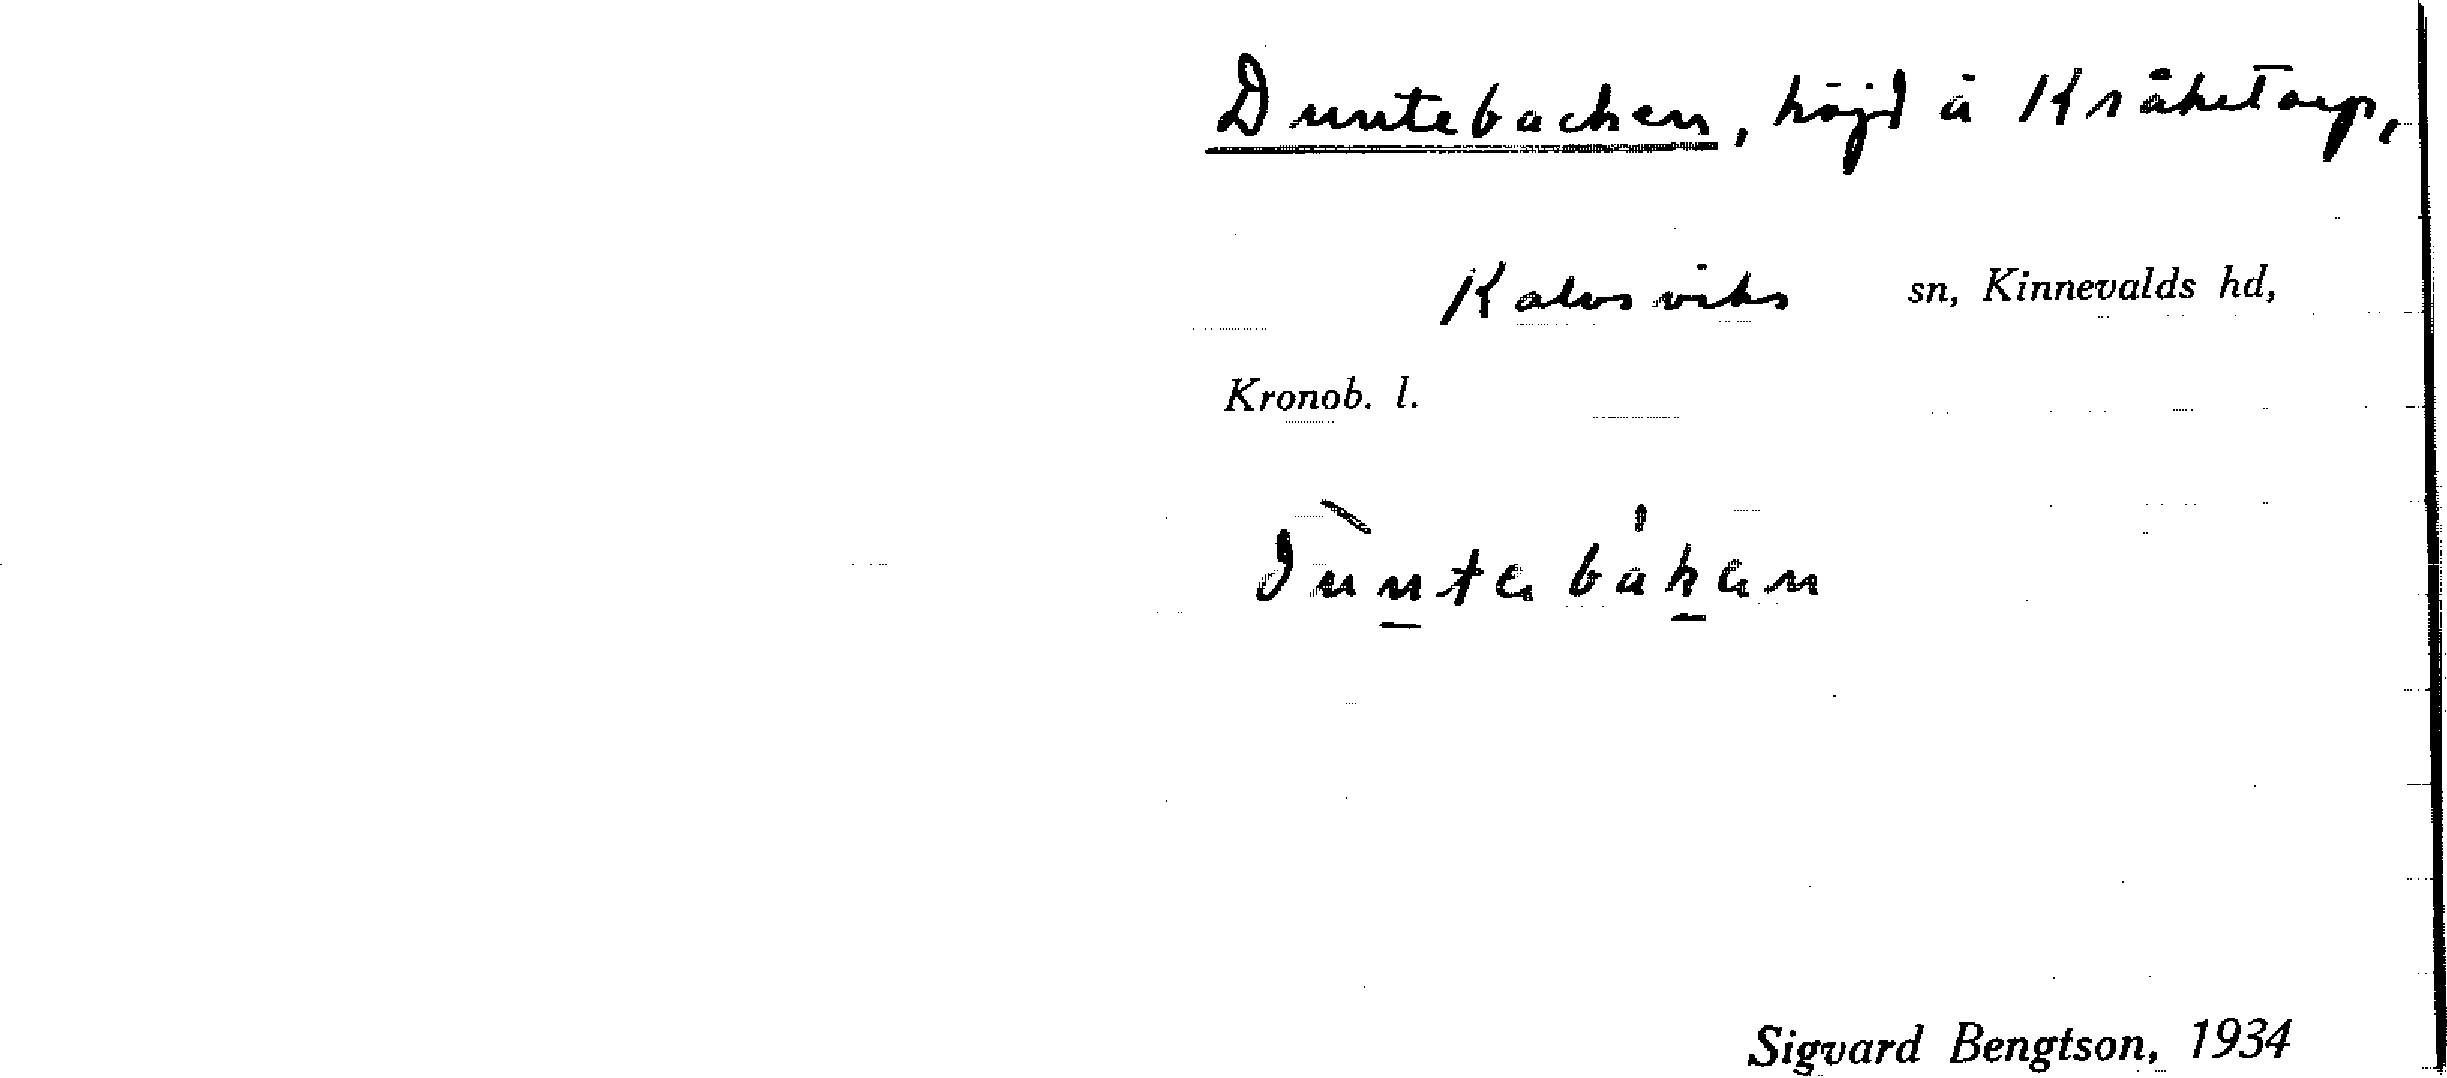 Duntebacken, höjd å Kråketorp,
Kalvsviks sn, Kinnevalds hd,
Kronob. l.
dùntabákan
Sigvard Bengtson, 1934